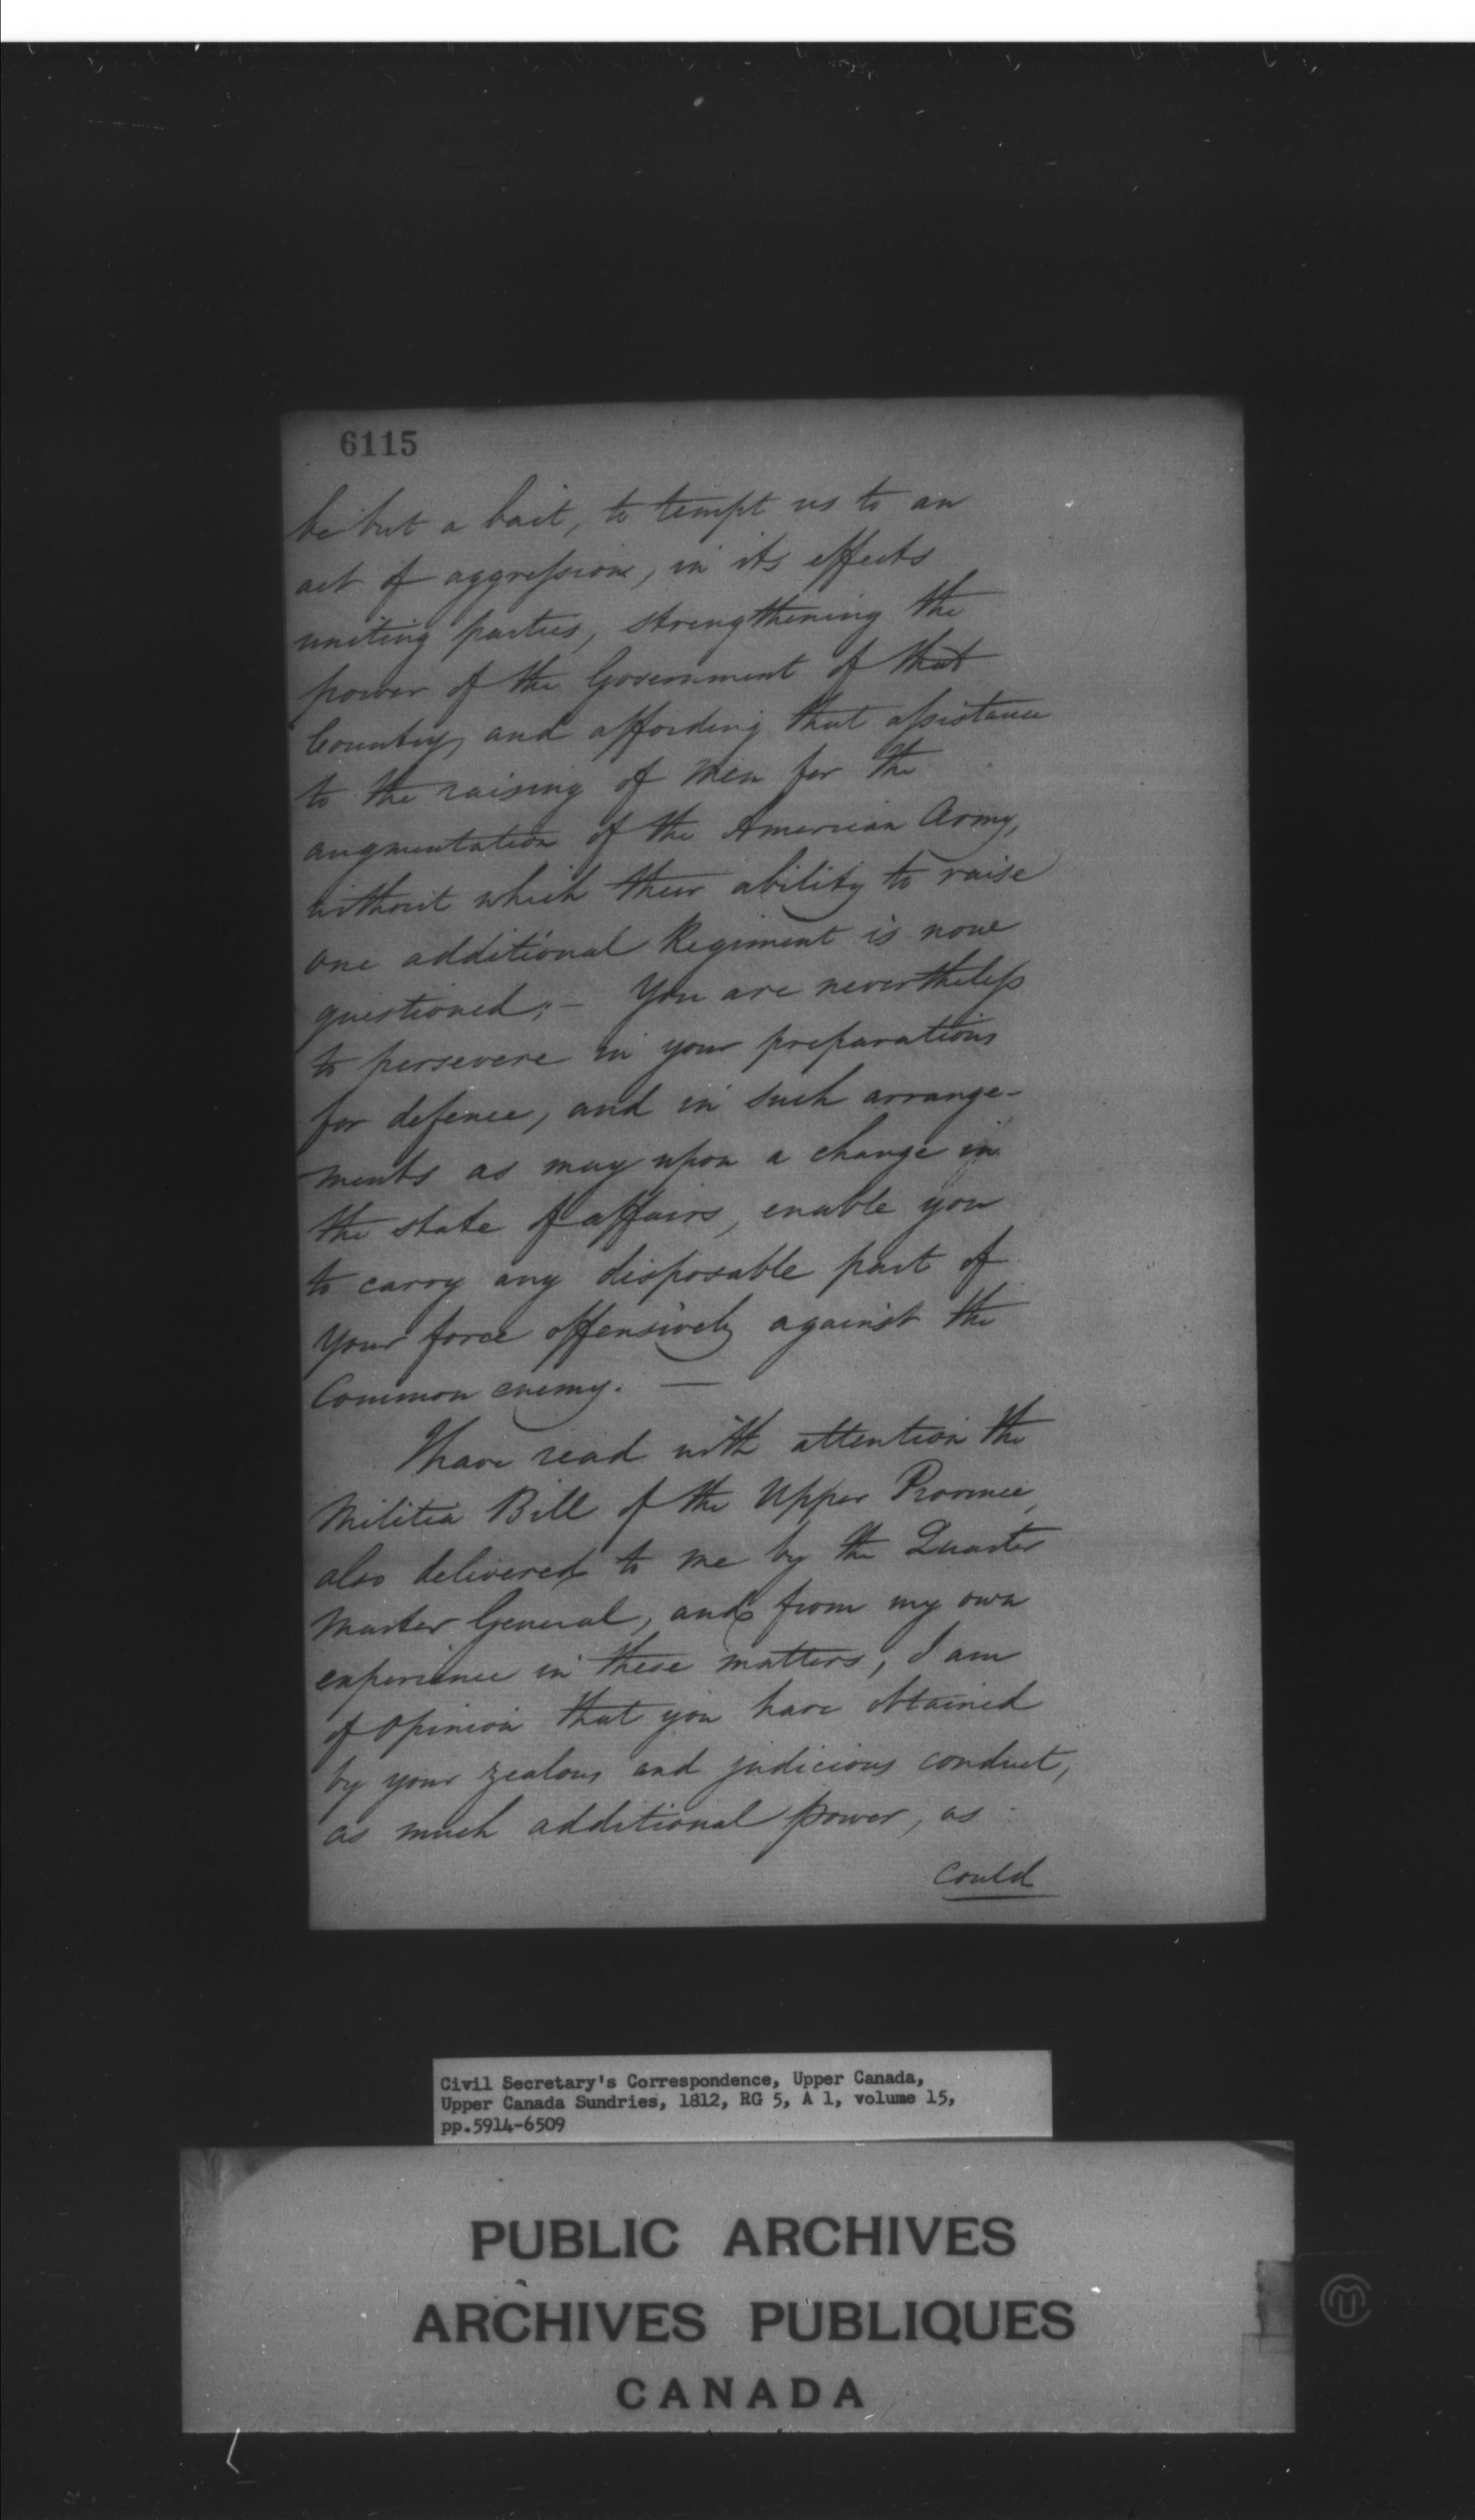 6115
be but a bait, to tempt us to an
act of aggression, in its effects
uniting parties, strengthening the
power of the Government of that
Country, and affording that assistance
to the raising of Men for the
augmentation of the American Army,
without which their ability to raise
one additional Regiment is now
questioned; — You are nevertheless
to persevere in your preparations
for defence, and in such arrange-
ments as may upon a change in
the state of affairs, enable you
to carry any disposable part of
your force offensively against the
Common enemy. —
I have read with attention the
Militia Bill of the Upper Province,
also delivered to me by the Quarter
Master General, and from my own
experience in these matters, I am
of opinion that you have obtained
by your zealous and judicious conduct,
as much additional power, as
could
Civil Secretary's Correspondence, Upper Canada,
Upper Canada Sundries, 1812, RG 5, A 1, volume 15,
pp.5914-6509
PUBLIC ARCHIVES
ARCHIVES PUBLIQUES
CANADA